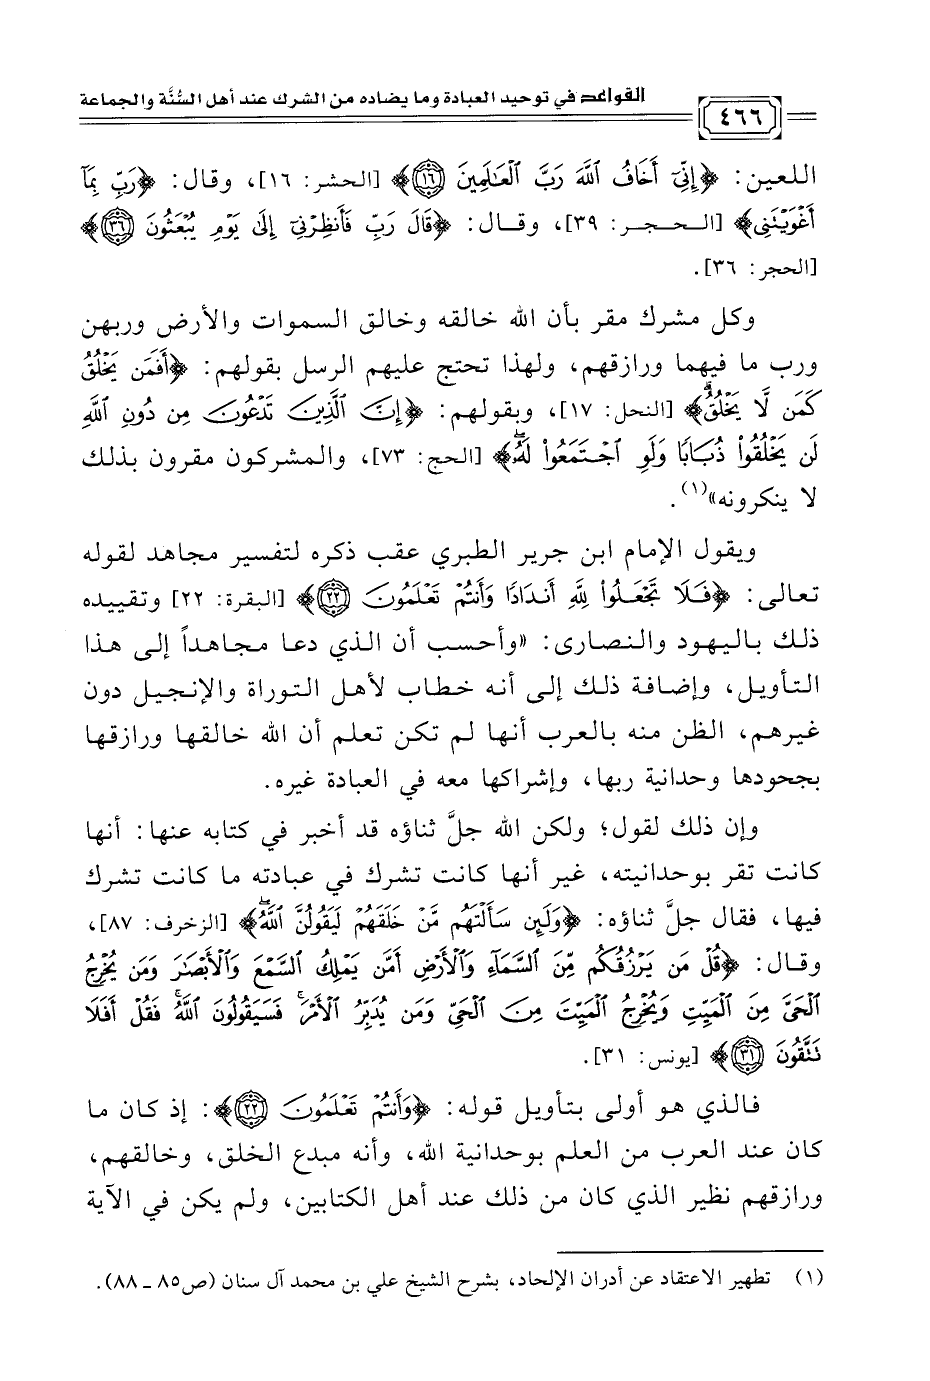 القواعد في توحيد العبادة وما يضاده من الشرك عند أهل السُّنَّة والجماعة
٤٦٦
اللعين: ﴿إِنِّيٓ أَخَافُ ٱللَّهَ رَبَّ ٱلۡعَٰلَمِينَ ١٦﴾ [الحشر: ١٦]، وقال: ﴿رَبِّ بِمَآ
أَغۡوَيۡتَنِي﴾ [الـحـجـر: ٣٩]، وقـال: ﴿قَالَ رَبِّ فَأَنظِرۡنِيٓ إِلَىٰ يَوۡمِ يُبۡعَثُونَ ٣٦﴾
[الحجر: ٣٦].
وكل مشرك مقر بأن الله خالقه وخالق السموات والأرض وربهن
ورب ما فيهما ورازقهم، ولهذا تحتج عليهم الرسل بقولهم: ﴿أَفَمَن يَخۡلُقُ
كَمَن لَّا يَخۡلُقُۗ﴾ [النحل: ١٧]، وبقولهم: ﴿إِنَّ ٱلَّذِينَ تَدۡعُونَ مِن دُونِ ٱللَّهِ
لَن يَخۡلُقُواْ ذُبَابٗا وَلَوِ ٱجۡتَمَعُواْ لَهُۥۖ﴾ [الحج: ٧٣]، والمشركون مقرون بذلك
لا ينكرونه»(١).
ويقول الإمام ابن جرير الطبري عقب ذكره لتفسير مجاهد لقوله
تعالى: ﴿فَلَا تَجۡعَلُواْ لِلَّهِ أَندَادٗا وَأَنتُمۡ تَعۡلَمُونَ ٢٢﴾ [البقرة: ٢٢] وتقييده
ذلك باليهود والنصارى: «وأحسب أن الذي دعا مجاهداً إلى هذا
التأويل، وإضافة ذلك إلى أنه خطاب لأهل التوراة والإنجيل دون
غيرهم، الظن منه بالعرب أنها لم تكن تعلم أن الله خالقها ورازقها
بجحودها وحدانية ربها، وإشراكها معه في العبادة غيره.
وإن ذلك لقول؛ ولكن الله جلَّ ثناؤه قد أخبر في كتابه عنها: أنها
كانت تقر بوحدانيته، غير أنها كانت تشرك في عبادته ما كانت تشرك
فيها، فقال جلَّ ثناؤه: ﴿وَلَئِن سَأَلۡتَهُم مَّنۡ خَلَقَهُمۡ لَيَقُولُنَّ ٱللَّهُۖ﴾ [الزخرف: ٨٧]،
وقال: ﴿قُلۡ مَن يَرۡزُقُكُم مِّنَ ٱلسَّمَآءِ وَٱلۡأَرۡضِ أَمَّن يَمۡلِكُ ٱلسَّمۡعَ وَٱلۡأَبۡصَٰرَ وَمَن يُخۡرِجُ
ٱلۡحَيَّ مِنَ ٱلۡمَيِّتِ وَيُخۡرِجُ ٱلۡمَيِّتَ مِنَ ٱلۡحَيِّ وَمَن يُدَبِّرُ ٱلۡأَمۡرَۚ فَسَيَقُولُونَ ٱللَّهُۚ فَقُلۡ أَفَلَا
تَتَّقُونَ ٣١﴾ [يونس: ٣١].
فالذي هو أولى بتأويل قوله: ﴿وَأَنتُمۡ تَعۡلَمُونَ ٢٢﴾: إذ كان ما
كان عند العرب من العلم بوحدانية الله، وأنه مبدع الخلق، وخالقهم،
ورازقهم نظير الذي كان من ذلك عند أهل الكتابين، ولم يكن في الآية
(١) تطهير الاعتقاد عن أدران الإلحاد، بشرح الشيخ علي بن محمد آل سنان (ص٨٥ ـ ٨٨).